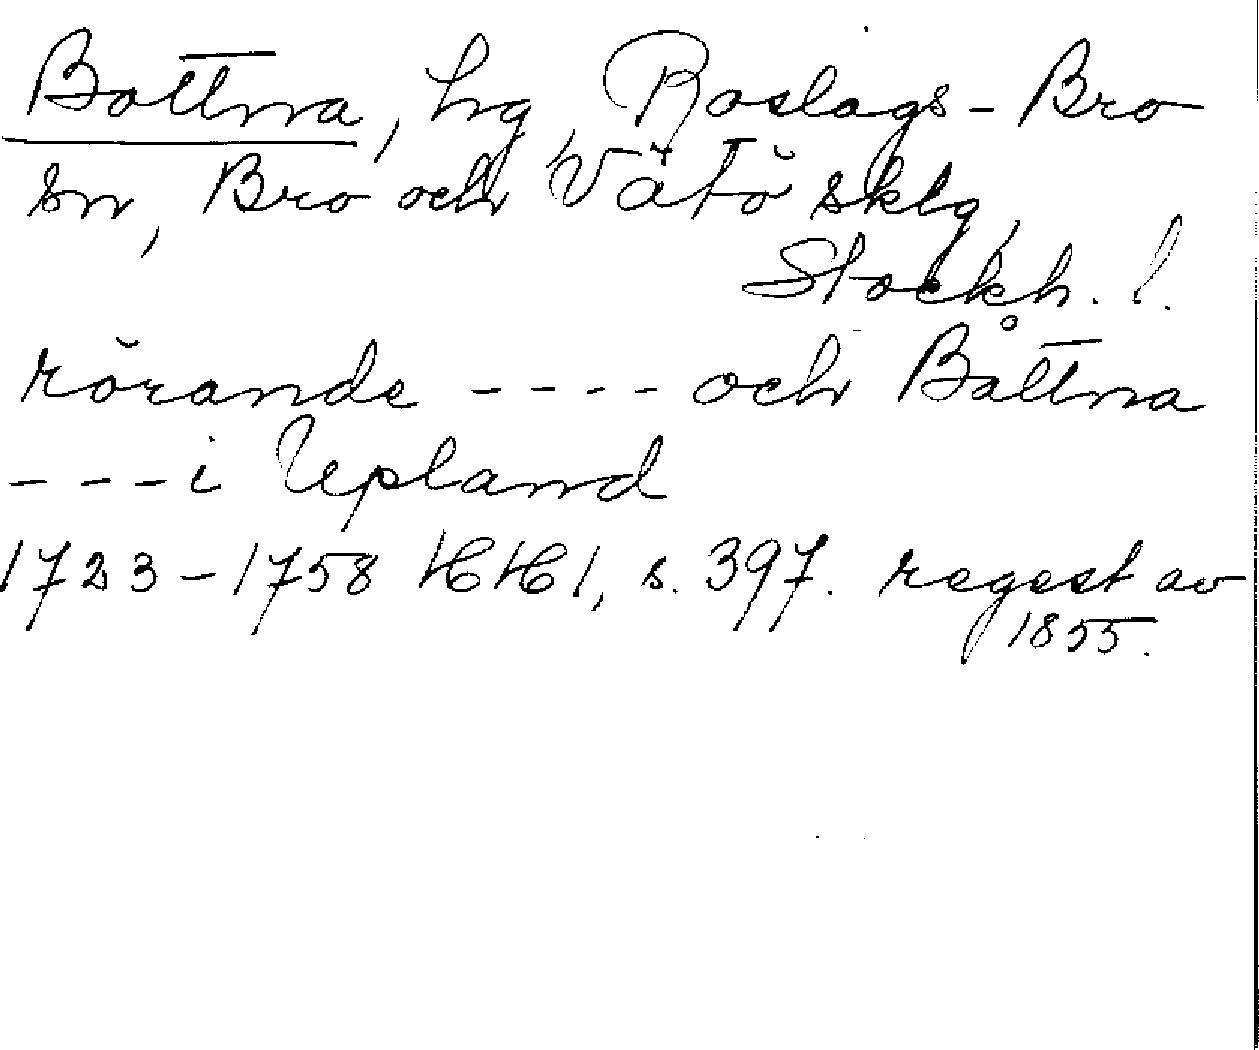 Bottna, hg, Roslags-Bro
sn, Bro och Vätö sklg,
Stockh. l.
rörande ---- och Båttna
--- i Upland
1723-1758 HH 1, s. 397. regest av
1855.